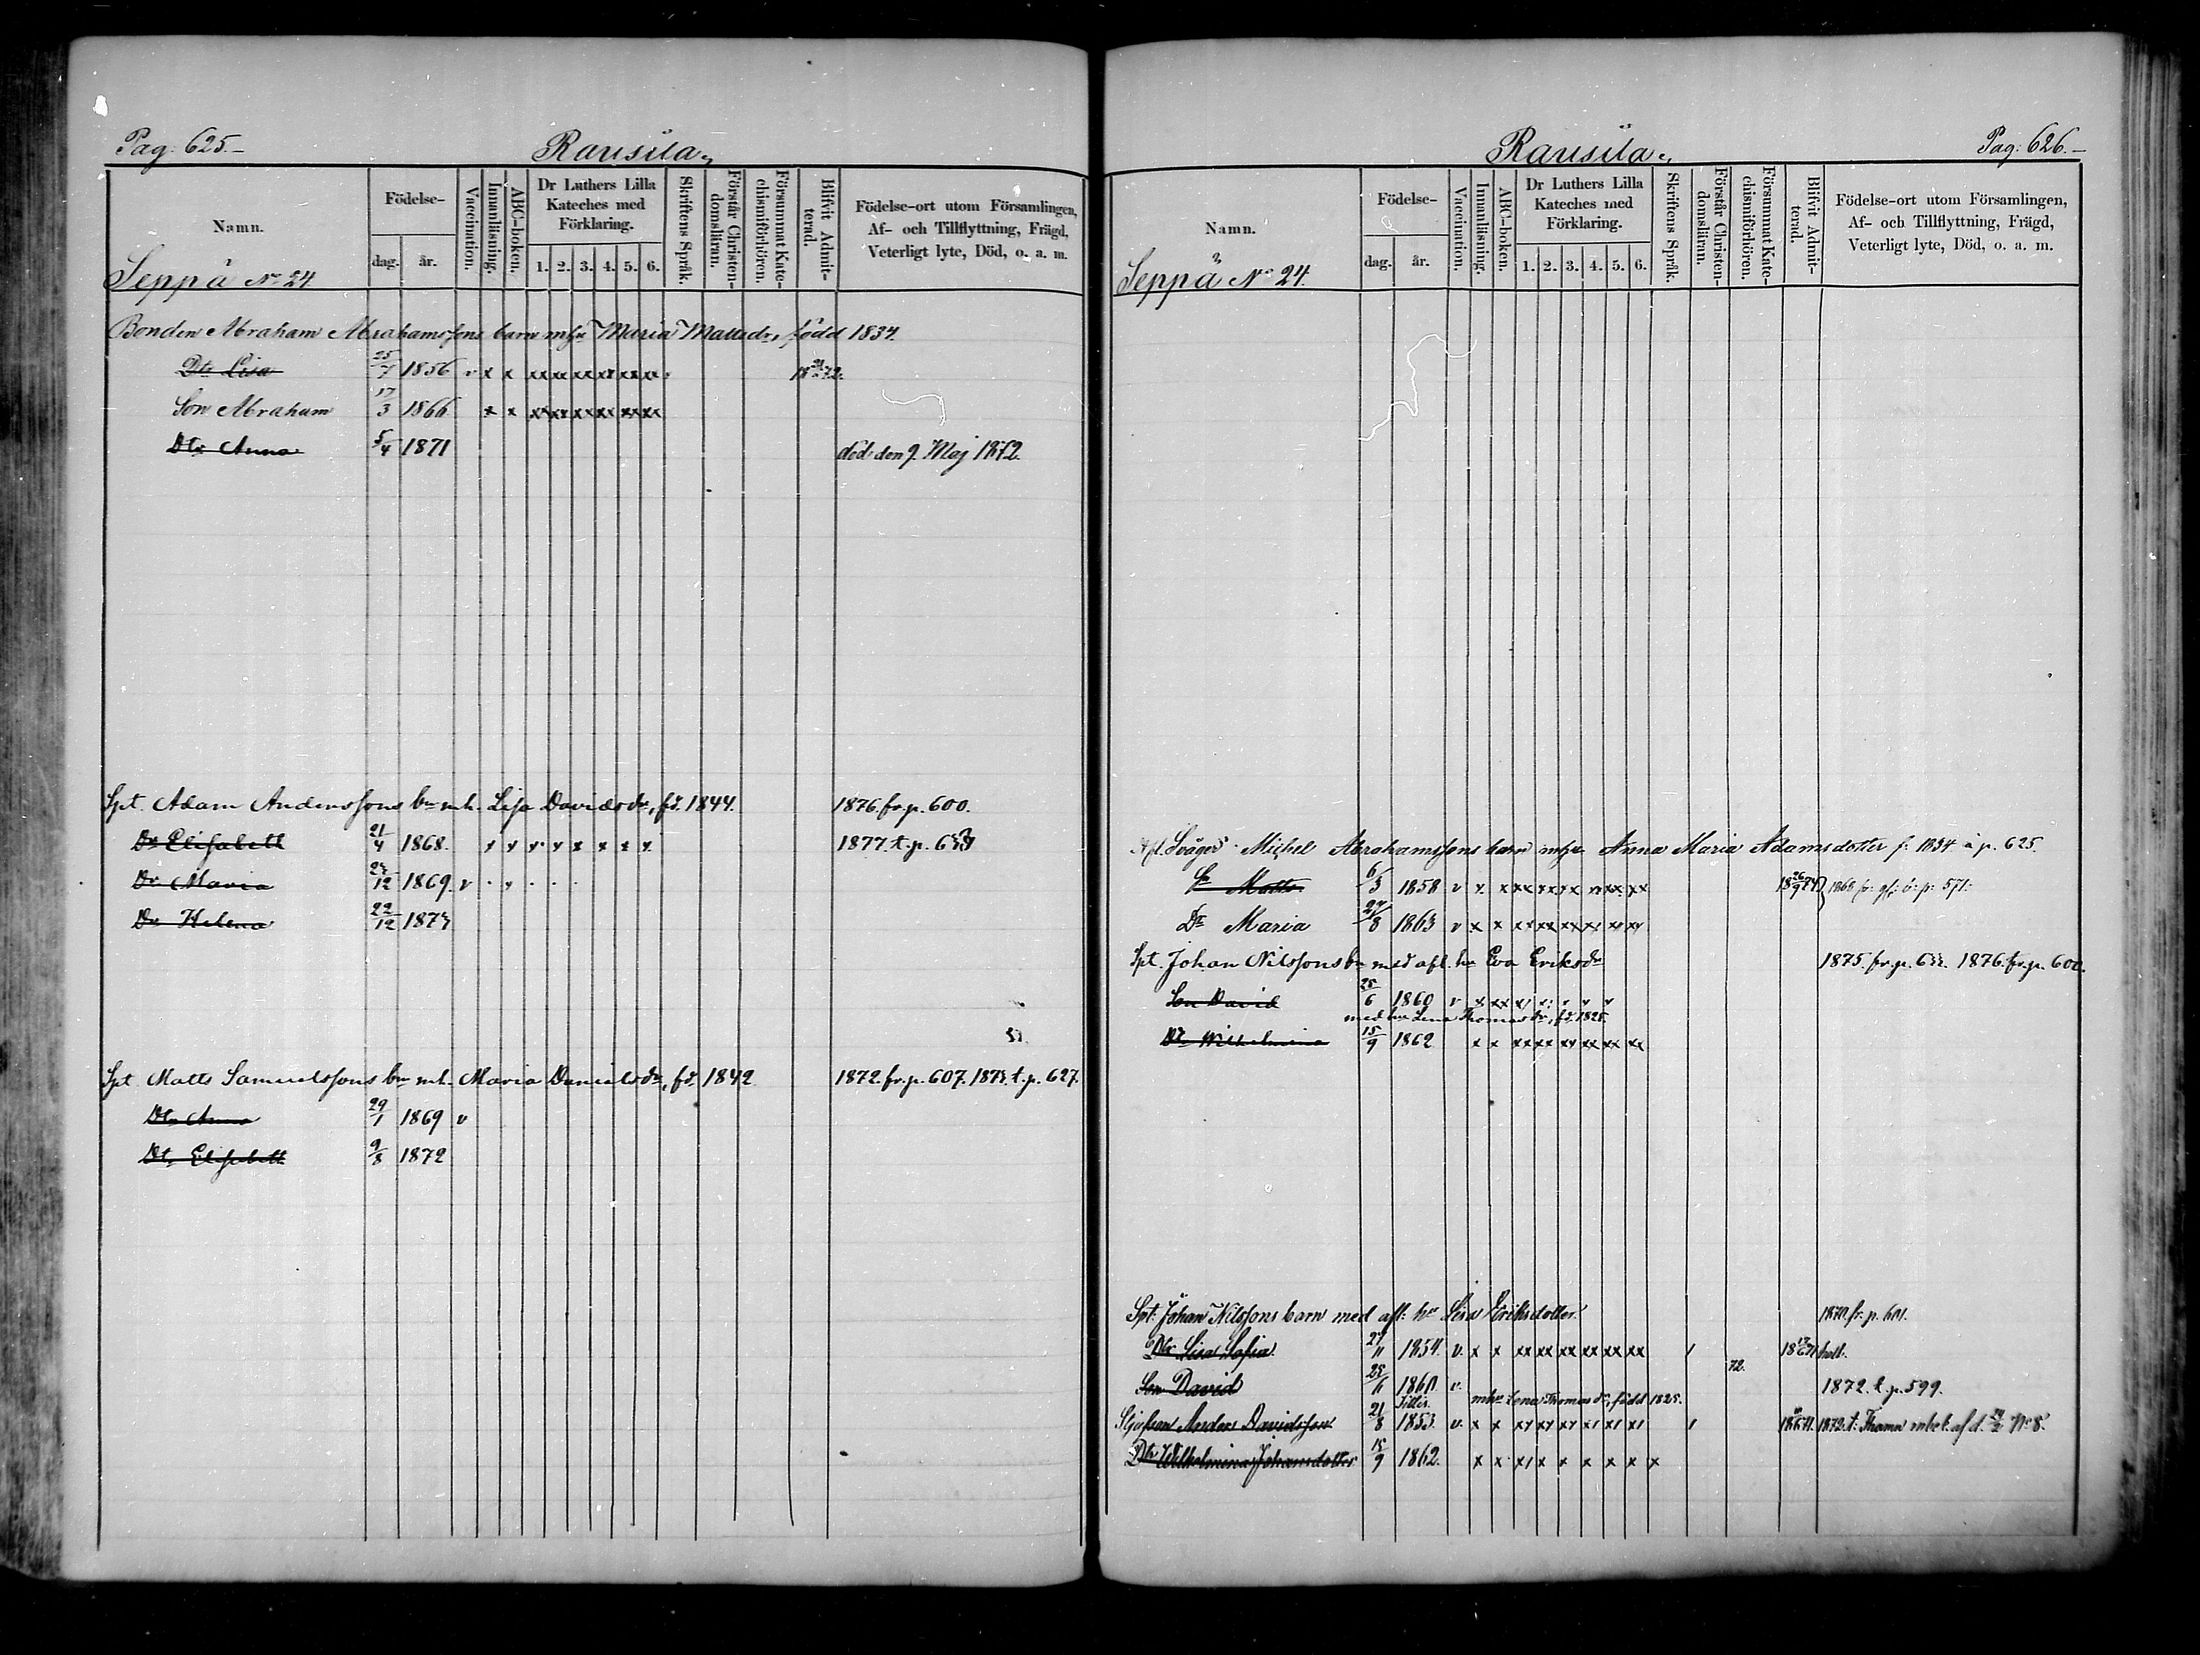 Pag: 625.–
Ransila
Namn.
Födelse–
dag.
år.
Vaccination.
Innanläsning.
ABC-boken.
Dr Luthers Lilla Kateches med Förklaring.
1. 2. 3. 4. 5. 6.
Skriftens Språk.
Förstår Christen-domsläran.
Försummat Kate-chismiförhören.
Blifvit Admit-terad.
Födelse-ort utom Församlingen,
Af- och Tillflyttning, Frägd,
Veterligt lyte, Död, o. a. m.
Seppä No 24
Bonden Abraham Abrahamssons barn m hu Maria Mattsdr, född 1834.
Dtr Lisa 25/7 1856 v x x xx xx xx xx xx xx
Son Abraham 17/3 1866 x x xx xx xx xx xx xx
Dtr Anna 5/4 1871 död den 9. Maj 1872.
Spt. Adam Anderssons bn m h. Lisa Davidsdr, fd. 1844. 1876. fr. p. 600.
Dr Elisabeth 21/4 1868. 1877. t. p.
Dr Maria 1869. v
Dr Helena 22/12 1873
Spt Matts Samuelssons bn m h. Maria Danielsdr, fd. 1842 1872. fr. p. 607. 1873. t. p. 627.
Dtr Anna 29/1 1869 v
Dtr Elisabeth 9/8 1872
Pag: 626.–
Ransila
Namn.
Födelse–
dag.
år.
Vaccination.
Innanläsning.
ABC-boken.
Dr Luthers Lilla Kateches med Förklaring.
1. 2. 3. 4. 5. 6.
Skriftens Språk.
Förstår Christen-domsläran.
Försummat Kate-chismiförhören.
Blifvit Admit-terad.
Födelse-ort utom Församlingen,
Af- och Tillflyttning, Frägd,
Veterligt lyte, Död, o. a. m.
Seppä No 24.
Afl. Svåger Michel Abrahamssons barn m hu Anna Maria Adamsdotter f. 1834 å p. 625.
Sn Matts 6/3 1858 v x x xx xx xx xx xx xx 18 26/9 74 p: 571.
Dr Maria 27/8 1863 v x x xx xx xx xx xx xx
Spt. Johan Nilssons bn med afl. hu Eva Eriksdr 1875. fr. p. 1876. fr. p. 600.
Son David 25/6 1860 v
med hu Lena Thomasdr, fd. 1825.
Dr Wilhelmina 15/9 1862 x x xx xx xx xx xx xx
Spt: Johan Nilssons barn med afl: hu Lisa Eriksdotter. 1870. fr. p. 601.
Dtr Lisa Sofia 27/11 1854. v. x x xx xx xx xx xx xx
72.
Son David 25/6 1860. v. 1872. t. p. 599.
m hu Lena Thomasdr, född 1825.
Styfson Anders Davidsson 21/8 1853. v. x x xx xx xx xx xx xx
Dtr Wilhelmina Johansdotter 15/9 1862. x x xx x x x x x x